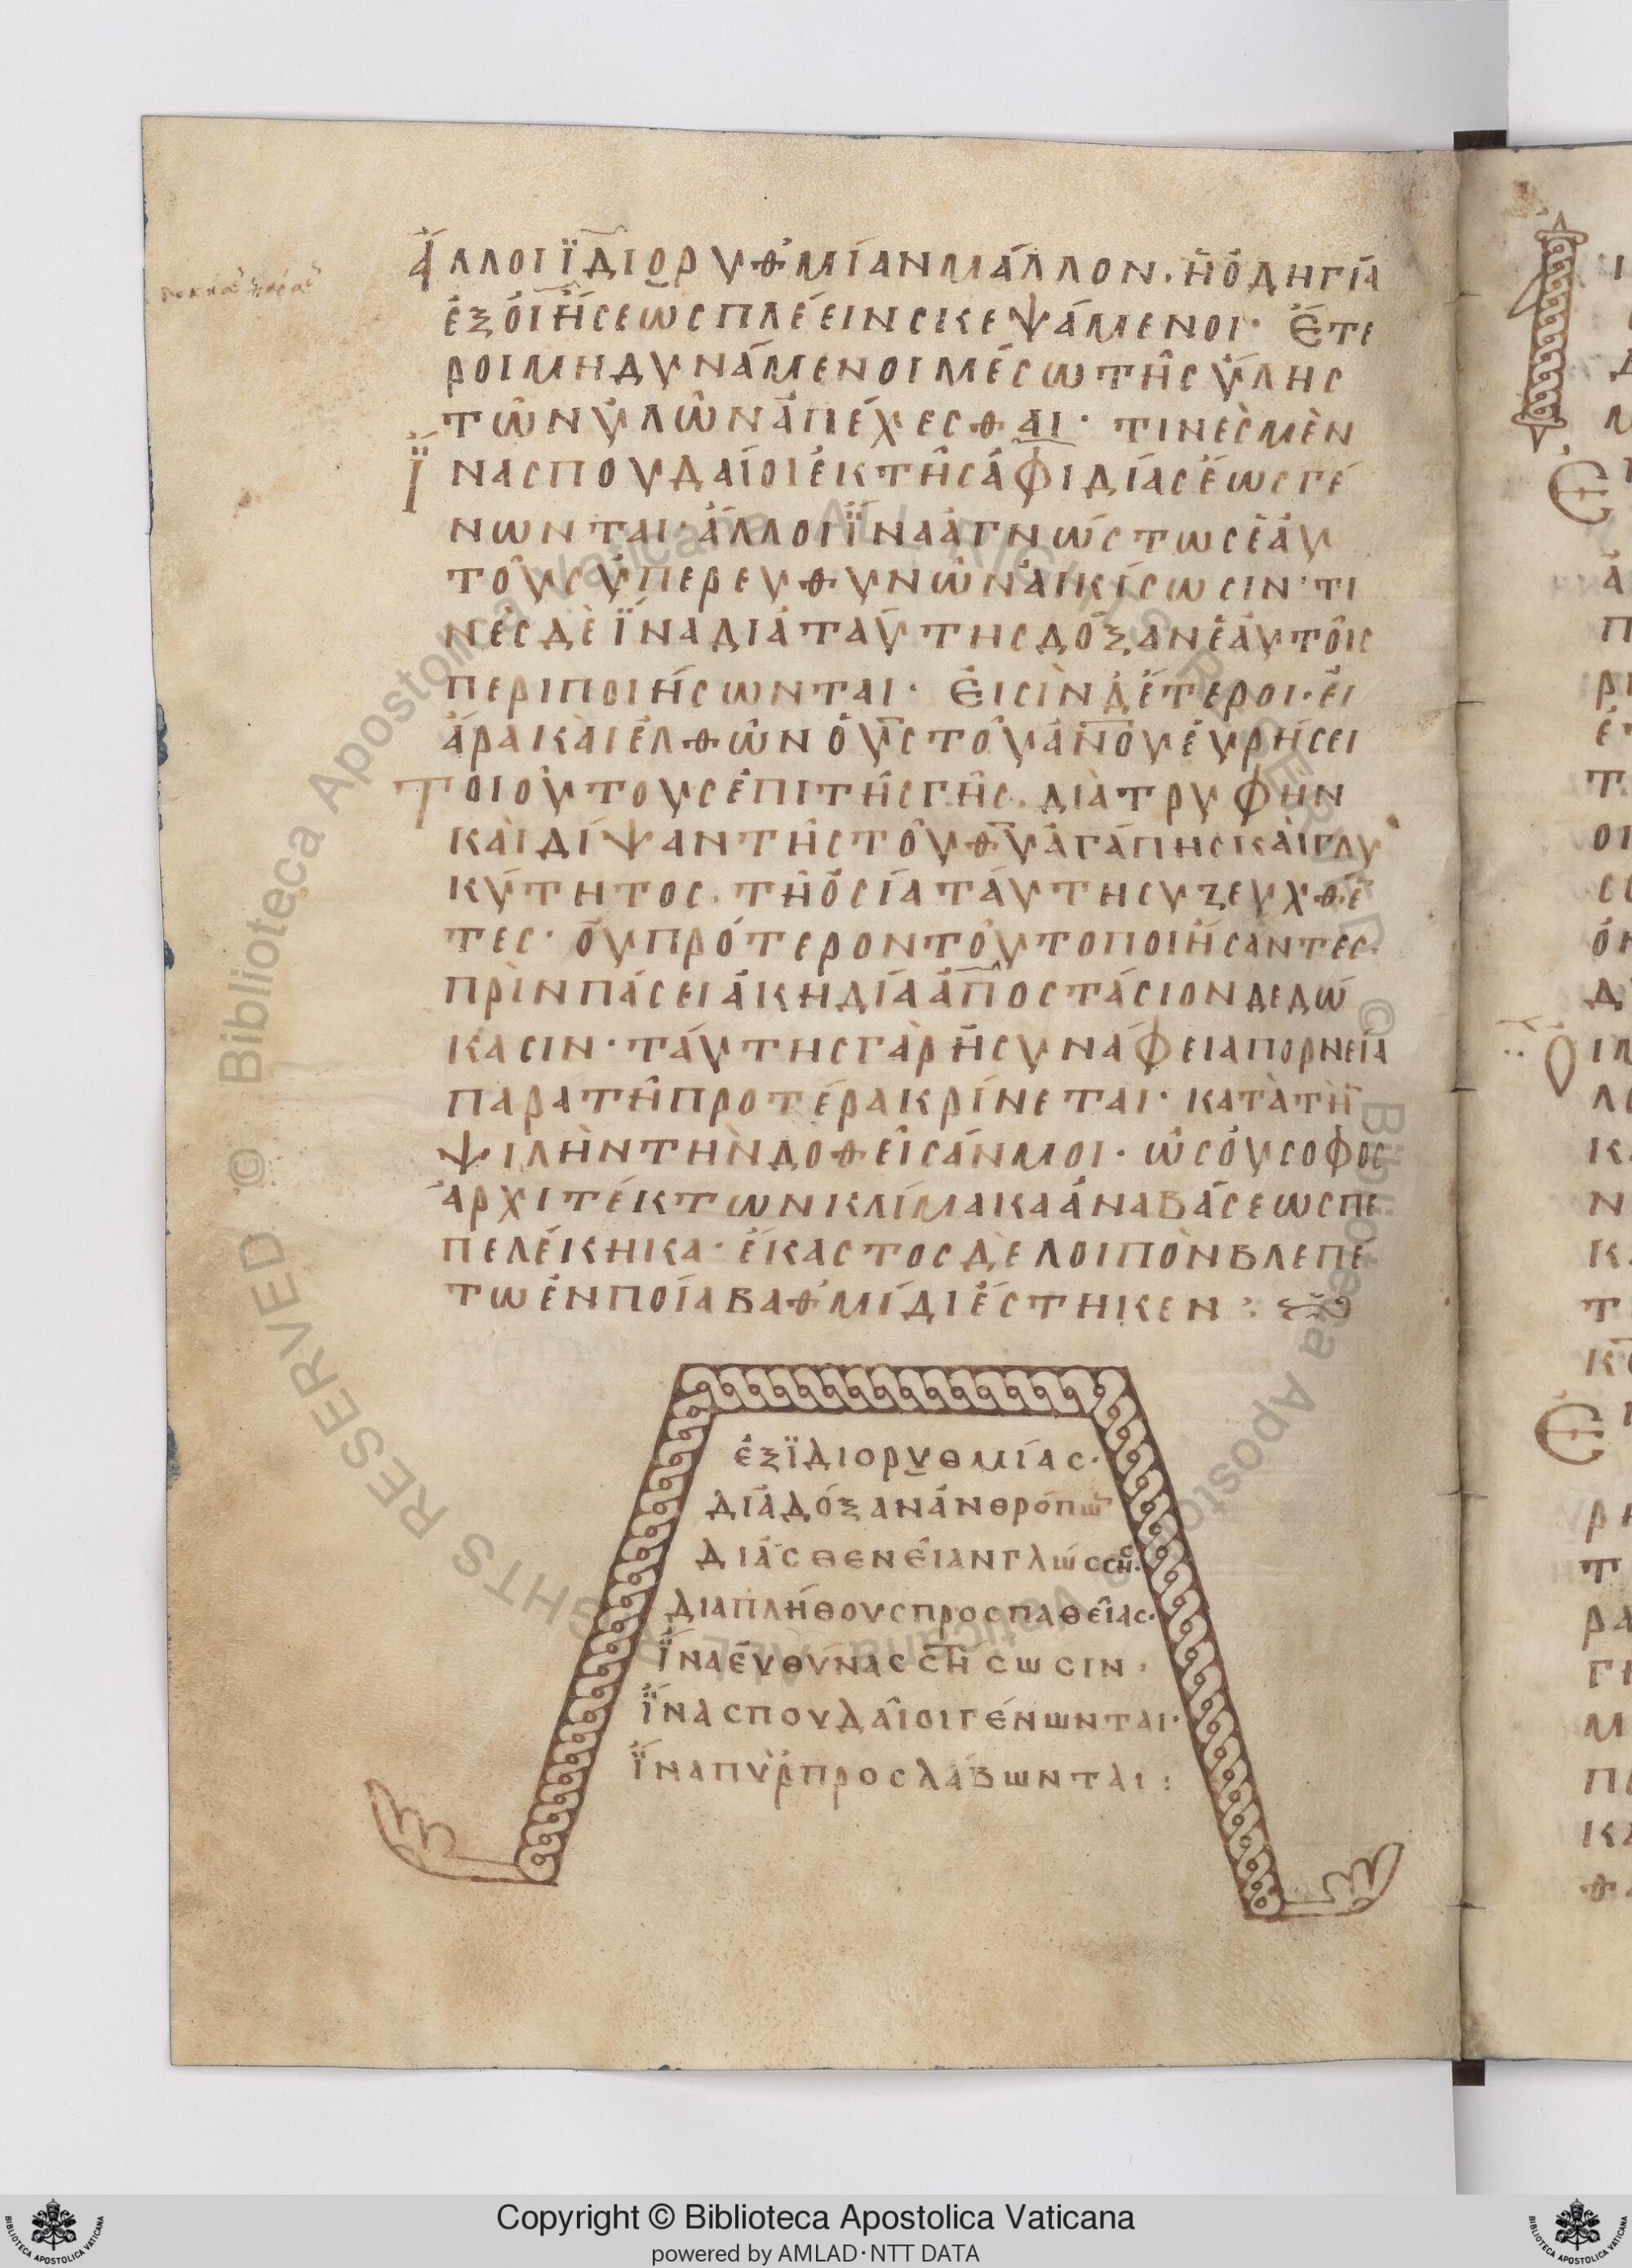 ἄλλοι ἰδιορυθμίαν μᾶλλον· ἢ ὁδηγία
ἐξ οἰήσεως πλέειν σκεψάμενοι· ἕτε
ροι μὴ δυνάμενοι μέσω τῆς ὕλης
τῶν ὑλῶν ἀπέχεσθαι· τινὲς μὲν
ἵνα σπουδαῖοι ἐκ τῆς ἀφιδίας ἕως γέ
νωνται· ἄλλοι ἵνα ἀγνώστως ἑαυ
τοὺς ὑπερευθυνῶν αἰκίσωσιν· τι
νὲς δὲ ἵνα διὰ ταύτης δόξαν ἑαυτοῖς
περιποιήσωνται· εἰσὶν δ' ἕτεροι· εἰ
ἄρα καὶ ἐλθὼν ὁ υς τοῦ ανου εὑρήσει
τοιούτους ἐπὶ τῆς γῆς· διὰ τρυφὴν
καὶ δίψαν τῆς τοῦ θυ ἀγάπης καὶ γλυ
κύτητος· τῆ ὁσία ταύτη συζευχθέ
τες· οὐ πρότερον τοῦτο ποιήσαντες·
πρὶν πάσει ἀκηδία ἀποστάσιον δεδώ
κασιν· ταύτης γὰρ ἡ συνάφεια πορνεία
παρὰ τῆ προτέρα κρίνεται· κατὰ τὴ
ψιλὴν τὴν δοθεῖσάν μοι· ὡς οὐ σοφὸς
ἀρχιτέκτων κλίμακα ἀναβάσεως πε
πελέκηκα· ἕκαστος δὲ λοιπὸν βλεπέ
τω ἐν ποία βαθμίδι ἕστηκεν :
ἐξ ἰδιορυθμίας·
διὰ δόξαν ἀνθρόπων
δι' ἀσθενείαν γλώσσης·
διὰ πλήθους προσπαθείας·
ἵνα εὐθύνας στήσωσιν·
ἵνα σπουδαῖοι γένωνται·
ἵνα πῦρ προσλάβωνται :
Copyright © Biblioteca Apostolica Vaticana
powered by AMLAD·NTT DATA